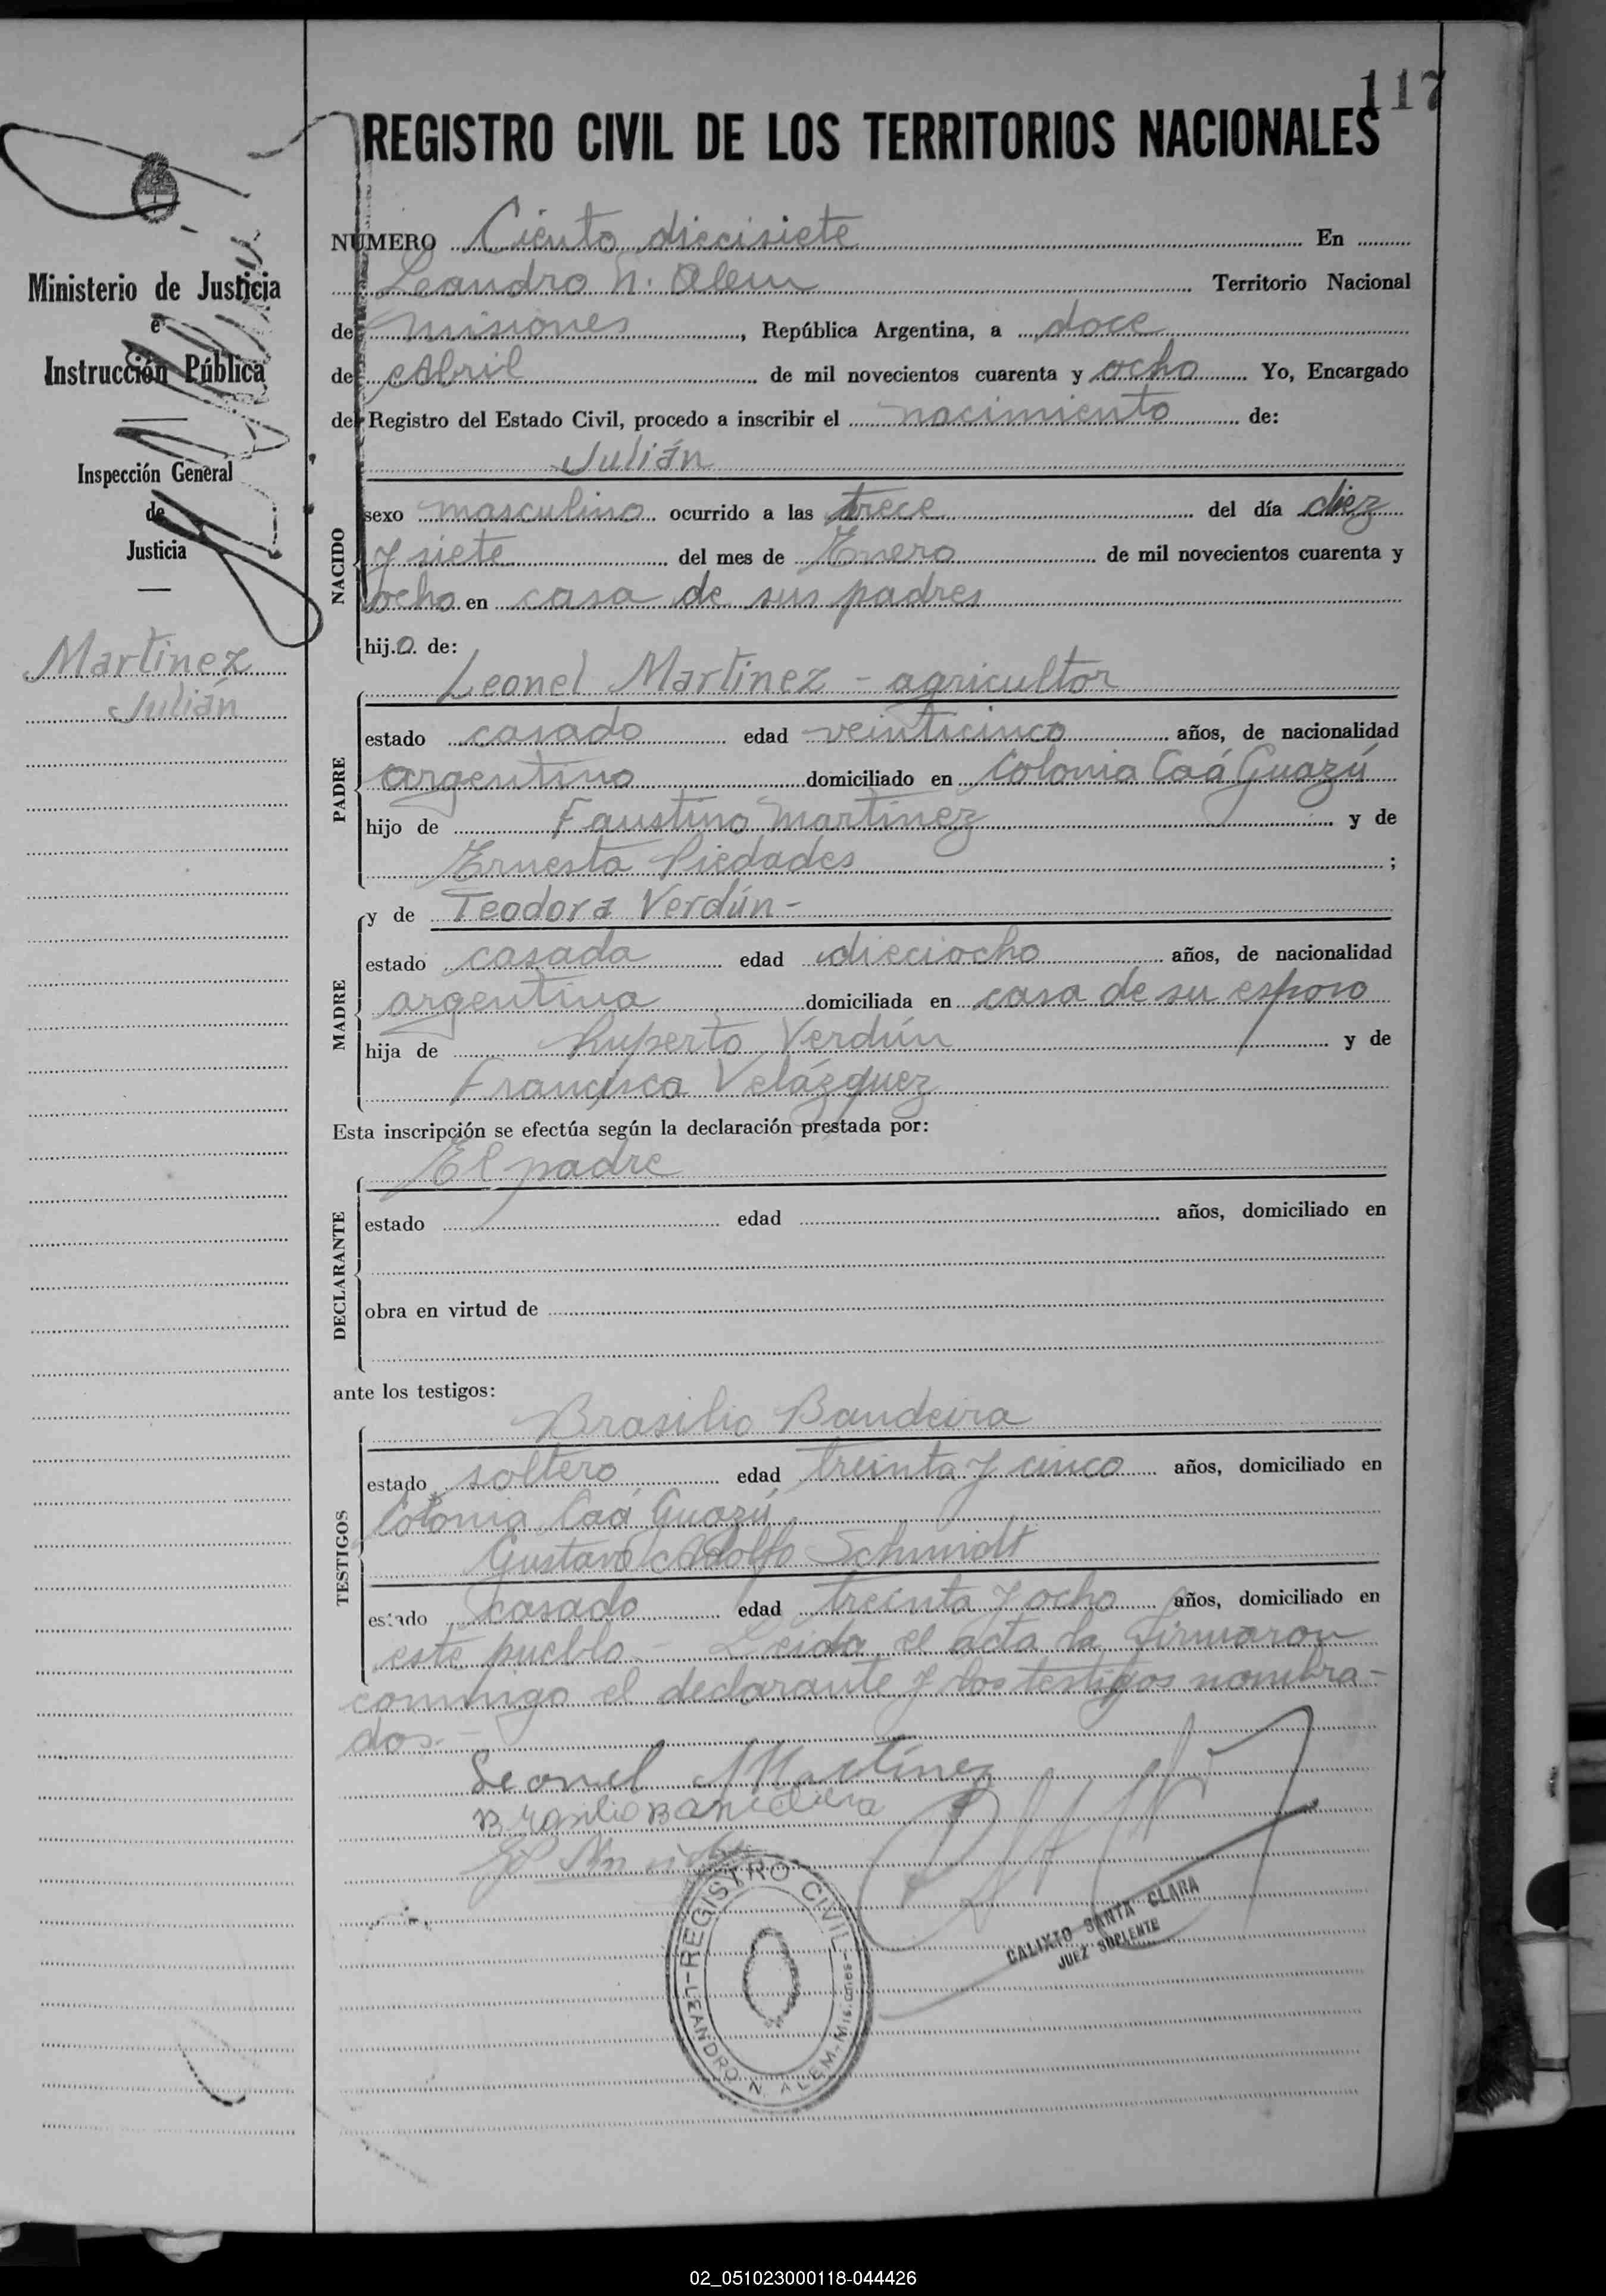 117
REGISTRO CIVIL DE LOS TERRITORIOS NACIONALES
Ministerio de Justicia
e
Instrucción Pública
Inspección General
de
Justicia
Martinez
Julián
NUMERO Ciento diecisiete En
Leandro N. Alem Territorio Nacional
de Misiones, República Argentina, a doce
de Abril de mil novecientos cuarenta y ocho Yo, Encargado
del Registro del Estado Civil, procedo a inscribir el nacimiento de:
Julián
NACIDO
sexo masculino ocurrido a las trece del día diez
y siete del mes de Enero de mil novecientos cuarenta y
ocho en casa de sus padres
hijo de:
Leonel Martinez - agricultor
PADRE
estado casado edad veinticinco años, de nacionalidad
argentino domiciliado en Colonia Caá Guazú
hijo de Faustino Martinez y de
Ernesta Piedades ;
y de Teodora Verdún -
MADRE
estado casada edad dieciocho años, de nacionalidad
argentina domiciliada en casa de su esposo
hija de Ruperto Verdún y de
Francisca Velázquez
Esta inscripción se efectúa según la declaración prestada por:
El padre
DECLARANTE
estado edad años, domiciliado en
obra en virtud de
ante los testigos:
Brasilio Bandeira
TESTIGOS
estado soltero edad treinta y cinco años, domiciliado en
Colonia Caá Guazú
Gustavo Adolfo Schmidt
estado casado edad treinta y ocho años, domiciliado en
este pueblo - Leida el acta la firmaron
conmigo el declarante y los testigos nombra-
dos.-
Leonel Martínez
Brasilio Bandeira
REGISTRO CIVIL
LEANDRO N. ALEM - Misiones
CALIXTO SANTA CLARA
JUEZ SUPLENTE
02_051023000118-044426